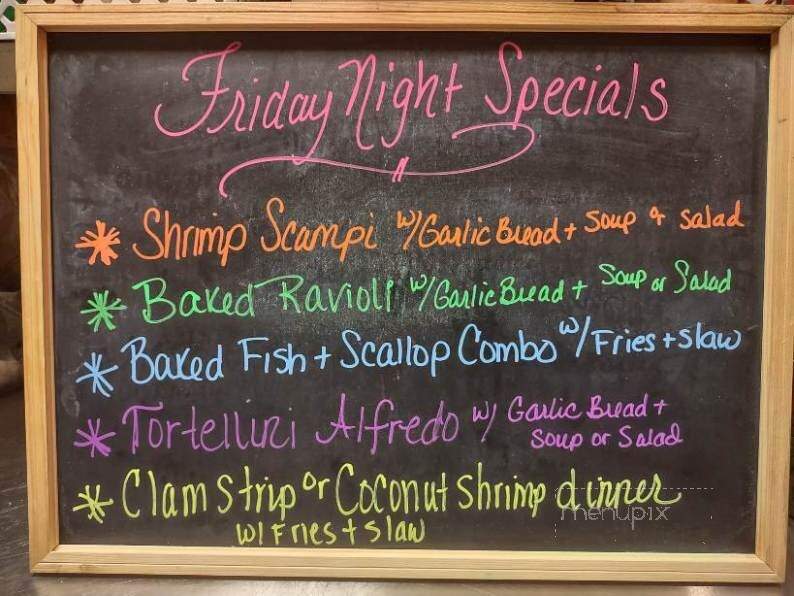 Friday Night Specials
* Shrimp Scampi w/Garlic Bread + Soup or Salad
* Baked Ravioli w/Garlic Bread + Soup or Salad
* Baked Fish + Scallop Combo w/Fries + Slaw
* Tortellini Alfredo w/ Garlic Bread +
Soup or Salad
* Clam Strip or Coconut Shrimp dinner
w/ Fries + Slaw
menupix